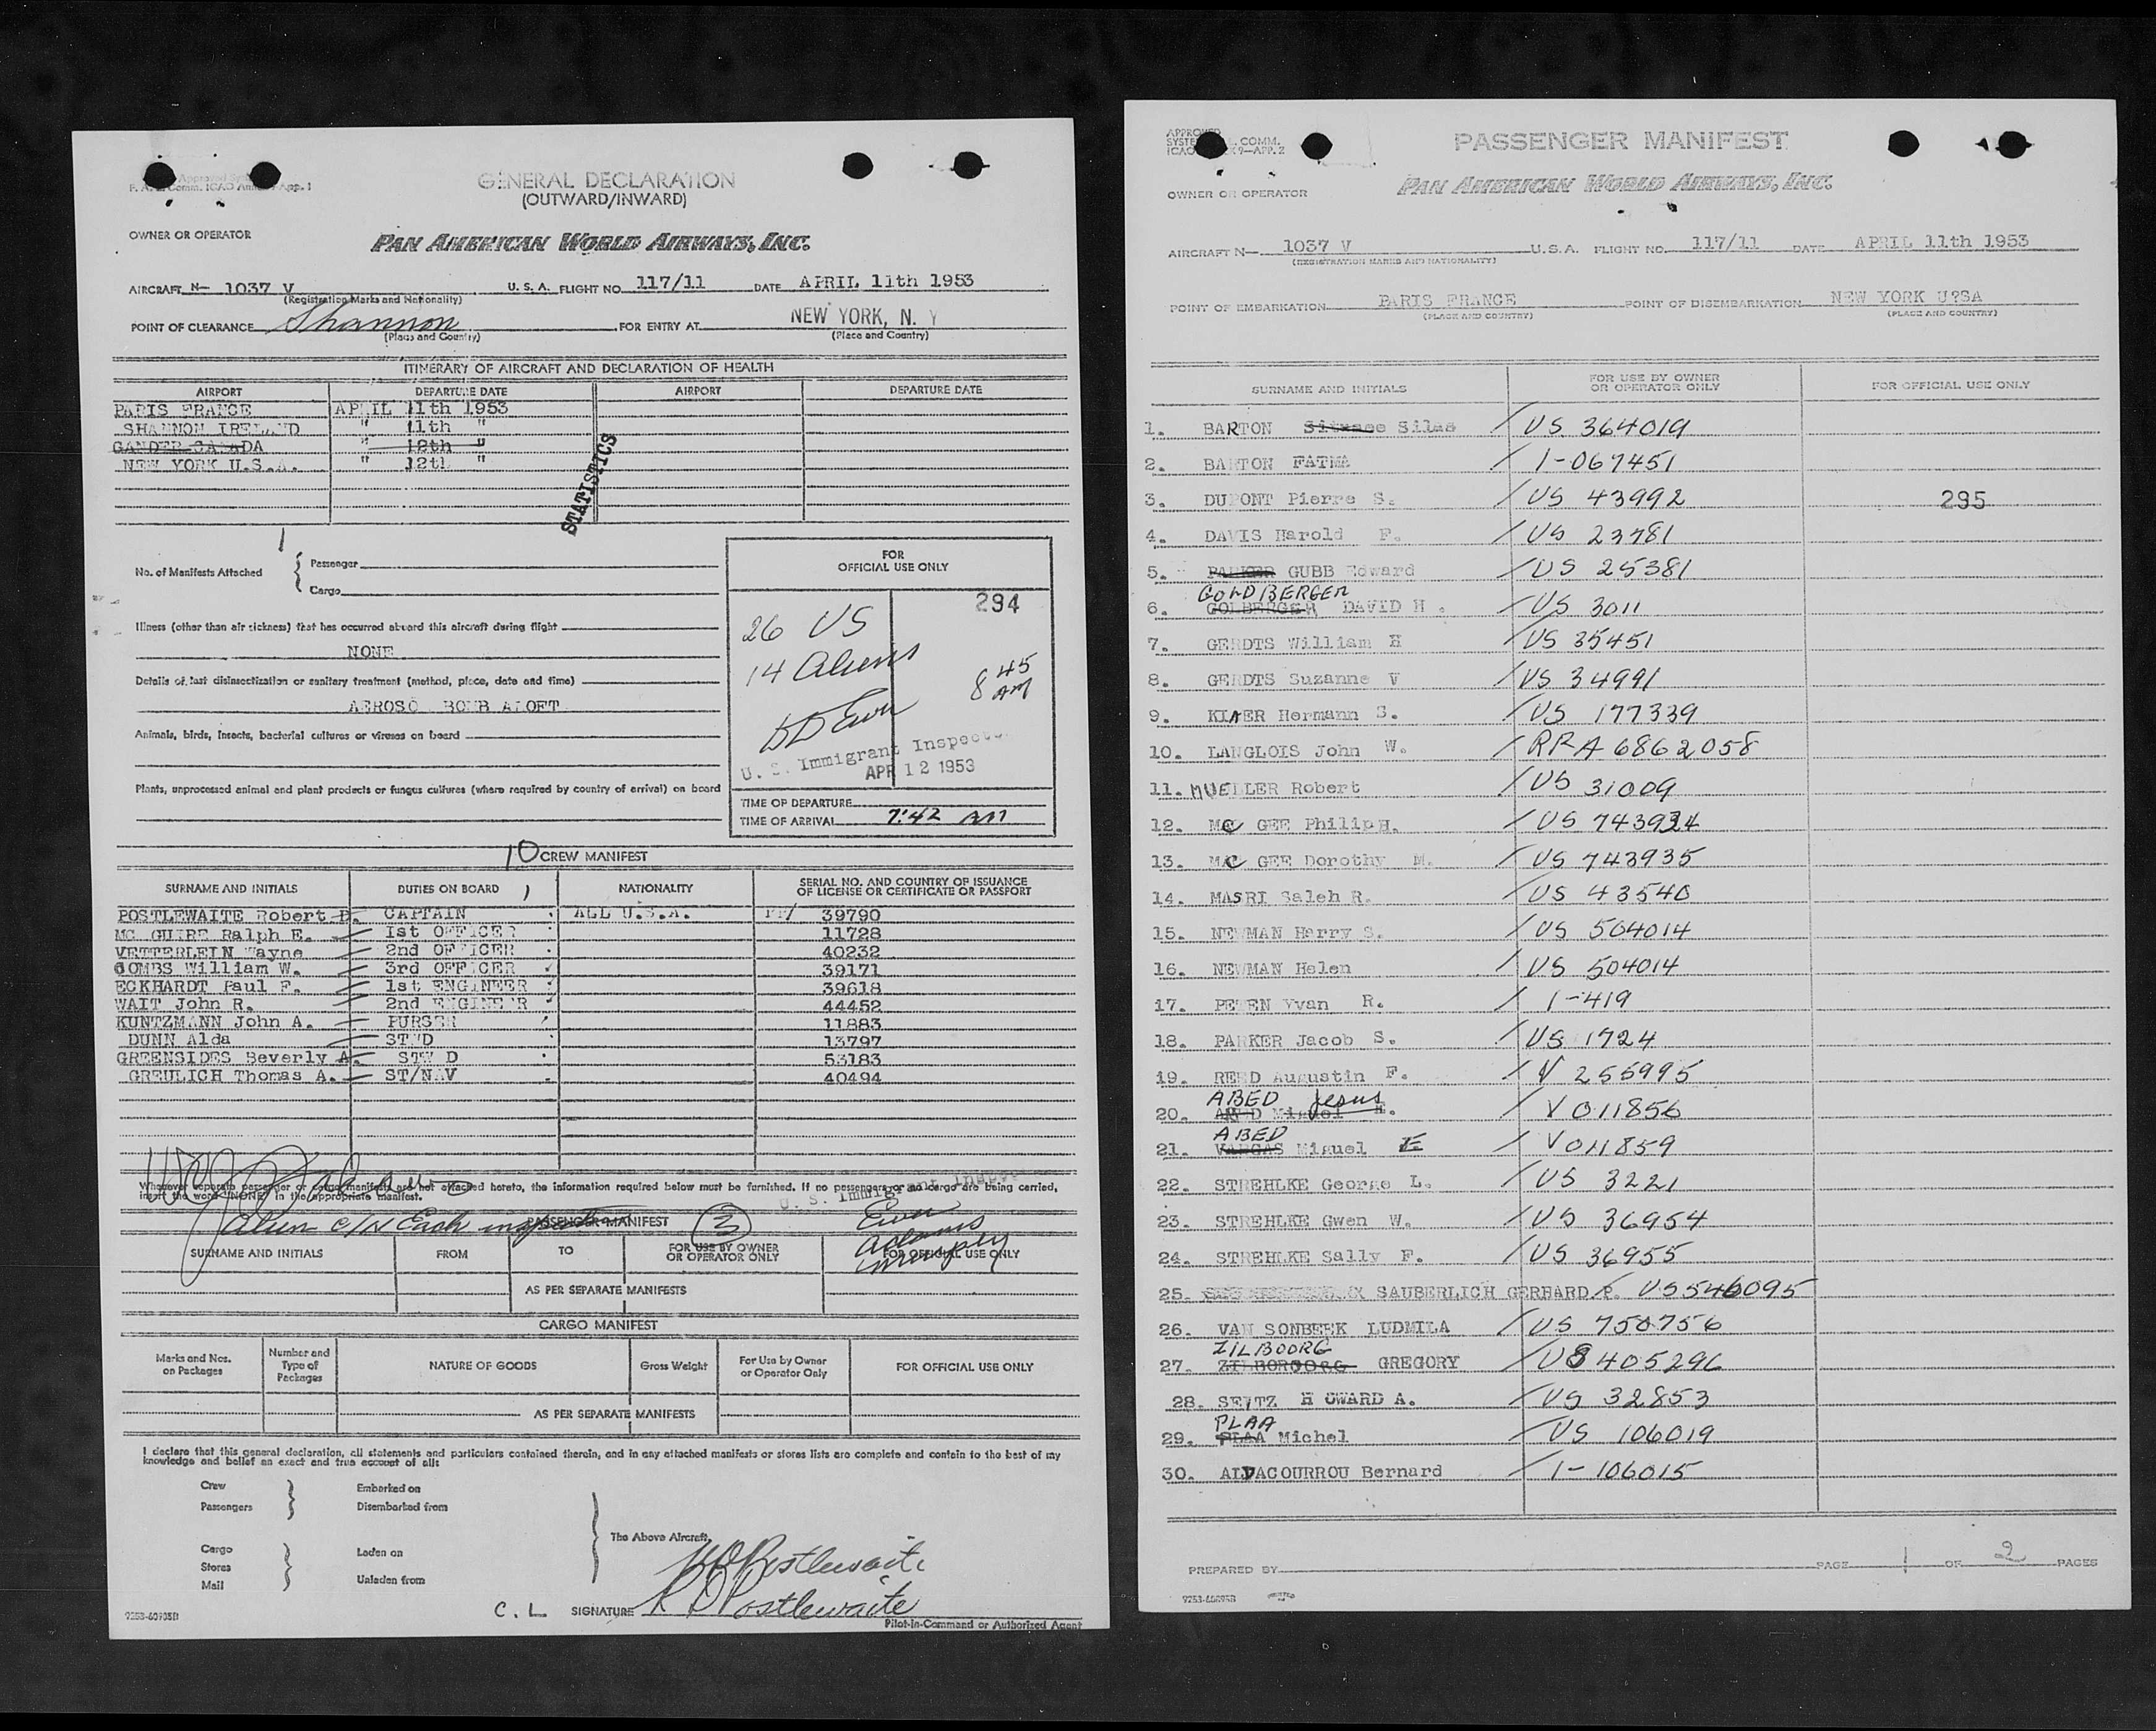 GENERAL DECLARATION
(OUTWARD/INWARD)
OWNER OR OPERATOR
PAN AMERICAN WORLD AIRWAYS, INC.
AIRCRAFT N- 1037 V U. S. A. FLIGHT NO. 117/11 DATE APRIL 11th 1953
(Registration Marks and Nationality)
POINT OF CLEARANCE Shannon FOR ENTRY AT NEW YORK, N. Y
(Place and Country) (Place and Country)
ITINERARY OF AIRCRAFT AND DECLARATION OF HEALTH
AIRPORT DEPARTURE DATE AIRPORT DEPARTURE DATE
PARIS FRANCE APRIL 11th 1953
SHANNON IRELAND " 11th "
GANDER CANADA " 12th "
NEW YORK U.S.A. " 12th "
STATISTICS
No. of Manifests Attached
1
Passenger
Cargo
Illness (other than air sickness) that has occurred aboard this aircraft during flight
NONE
Details of last disinsectization or sanitary treatment (method, place, date and time)
AEROSOL BOMB ALOFT
Animals, birds, insects, bacterial cultures or viruses on board
Plants, unprocessed animal and plant products or fungus cultures (where required by country of arrival) on board
FOR
OFFICIAL USE ONLY
294
26 US
14 Aliens
8 45 AM
U. S. Immigrant Inspector
APR 12 1953
TIME OF DEPARTURE
TIME OF ARRIVAL 7:42 AM
10 CREW MANIFEST
SURNAME AND INITIALS DUTIES ON BOARD NATIONALITY SERIAL NO. AND COUNTRY OF ISSUANCE
OF LICENSE OR CERTIFICATE OR PASSPORT
POSTLEWAITE Robert D. CAPTAIN ALL U.S.A. PP/ 39790
MC GUIRE Ralph E. 1st OFFICER 11728
VETTERLEIN Wayne 2nd OFFICER 40232
COMBS William W. 3rd OFFICER 39171
ECKHARDT Paul F. 1st ENGINEER 39618
WAIT John R. 2nd ENGINEER 44452
KUNTZMANN John A. PURSER 11883
DUNN Alda STWD 13797
GREENSIDES Beverly A. STW D 53183
GREULICH Thomas A. ST/NAV 40494
Whenever separate passenger or cargo manifests are not attached hereto, the information required below must be furnished. If no passengers or no cargo are being carried,
insert the word "NONE" in the appropriate manifest.
U. S. Immigrant
Alien c/w Each
PASSENGER MANIFEST
3
Ewen
Adams
Murphy
SURNAME AND INITIALS FROM TO FOR USE BY OWNER
OR OPERATOR ONLY FOR OFFICIAL USE ONLY
AS PER SEPARATE MANIFESTS
CARGO MANIFEST
Marks and Nos.
on Packages Number and
Type of
Packages NATURE OF GOODS Gross Weight For Use by Owner
or Operator Only FOR OFFICIAL USE ONLY
AS PER SEPARATE MANIFESTS
I declare that this general declaration, all statements and particulars contained therein, and in any attached manifests or stores lists are complete and contain to the best of my
knowledge and belief an exact and true account of all:
Crew Embarked on
Passengers Disembarked from
The Above Aircraft.
Cargo Laden on
Stores
Mail Unladen from
R D Postlewaite
C. L SIGNATURE R D Postlewaite
Pilot-in-Command or Authorized Agent
PASSENGER MANIFEST
PAN AMERICAN WORLD AIRWAYS, INC.
OWNER OR OPERATOR
AIRCRAFT N— 1037 V U.S.A. FLIGHT NO. 117/11 DATE APRIL 11th 1953
(REGISTRATION MARKS AND NATIONALITY)
POINT OF EMBARKATION PARIS FRANCE POINT OF DISEMBARKATION NEW YORK U?SA
(PLACE AND COUNTRY) (PLACE AND COUNTRY)
SURNAME AND INITIALS FOR USE BY OWNER
OR OPERATOR ONLY FOR OFFICIAL USE ONLY
1. BARTON Silas / US 364019
2. BARTON FATMA / 1-067451
3. DUPONT Pierre S. / US 43992 295
4. DAVIS Harold F. / US 23781
5. PARKER GUBB Edward / US 25381
GOLDBERGER
6. GOLBERGER DAVID H. / US 3011
7. GERDTS William H / US 35451
8. GERDTS Suzanne V / US 34991
9. KINER Hermann S. / US 177339
10. LANGLOIS John W. / RRA 6862058
11. MUELLER Robert / US 31009
12. MC GEE Philip H. / US 743934
13. MC GEE Dorothy M. / US 743935
14. MASRI Saleh R. / US 43540
15. NEWMAN Harry S. / US 504014
16. NEWMAN Helen / US 504014
17. PETEN Yvan R. / 1-419
18. PARKER Jacob S. / US 1724
19. REED Augustin F. / V 255995
ABED Jesus
20. Miguel E. / V 011856
ABED
21. VARGAS Miguel E / V 011859
22. STREHLKE George L. / US 3221
23. STREHLKE Gwen W. / US 36954
24. STREHLKE Sally F. / US 36955
25. SAUBERLICH GERHARD P. US 546095
26. VAN SONBEEK LUDMILA / US 750756
ZILBOORG
27. ZILBORGORG GREGORY / US 405296
28. SEITZ H OWARD A. / US 32853
PLAA
29. PLAA Michel / US 106019
30. ALDACOURROU Bernard / 1-106015
PREPARED BY PAGE 1 OF 2 PAGES